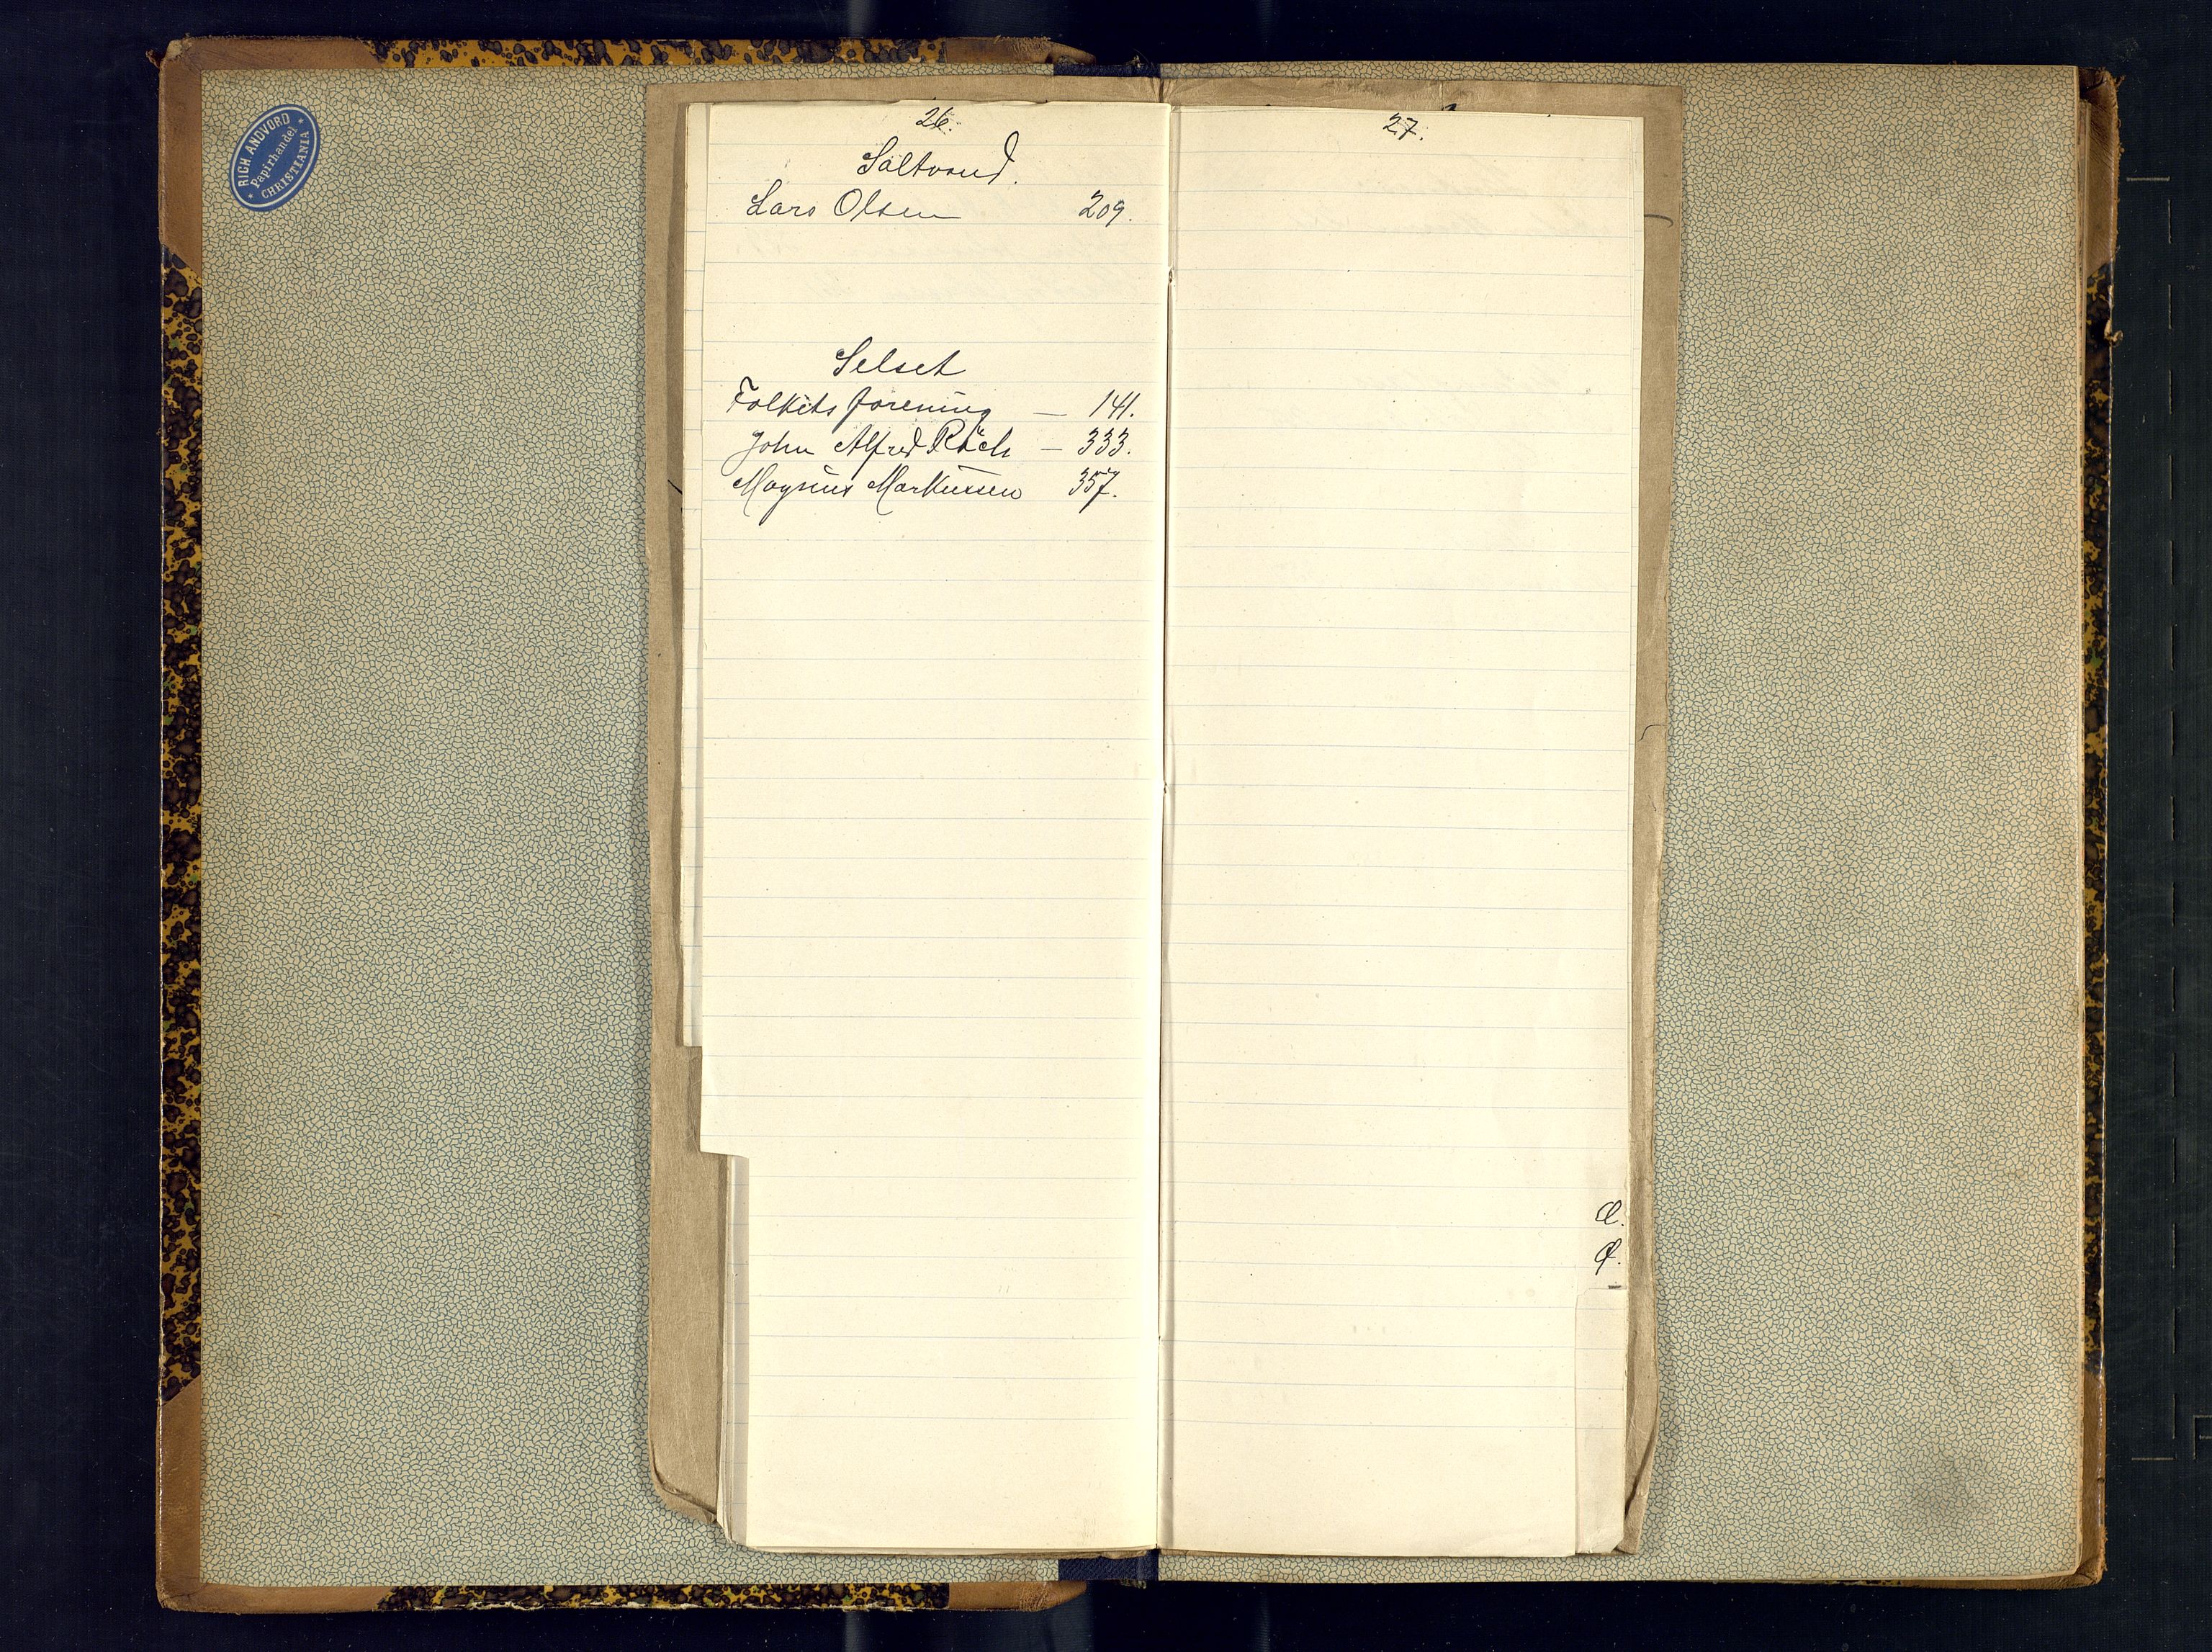 RICH. ANDVORD
Papirhandel
CHRISTIANIA
26.
Saltvand.
Lars Olsen 209.
Selset
Folkets forening — 141.
John Alfred Räch — 333.
Magnus Markussen 357.
27.
Æ.
Ø.